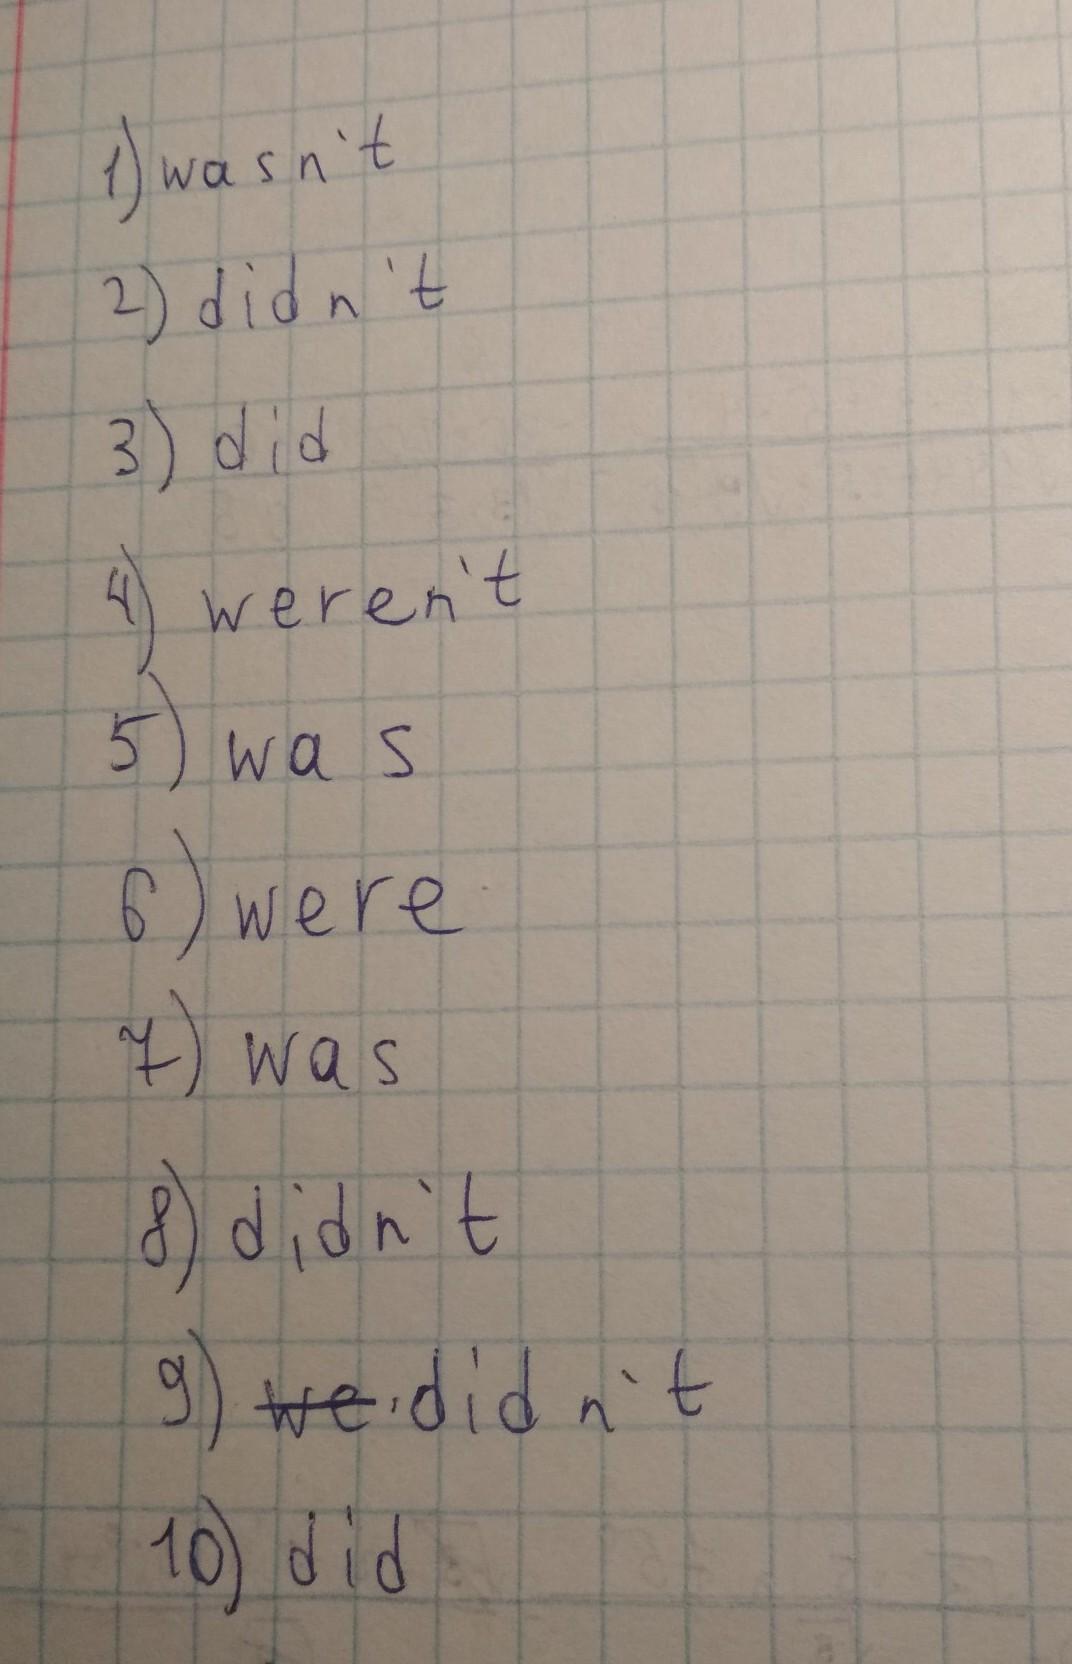 1) wasn't
2) didn't
3) did
4) weren't
5) was
6) were
7) was
8) didn't
9) we didn't
10) did